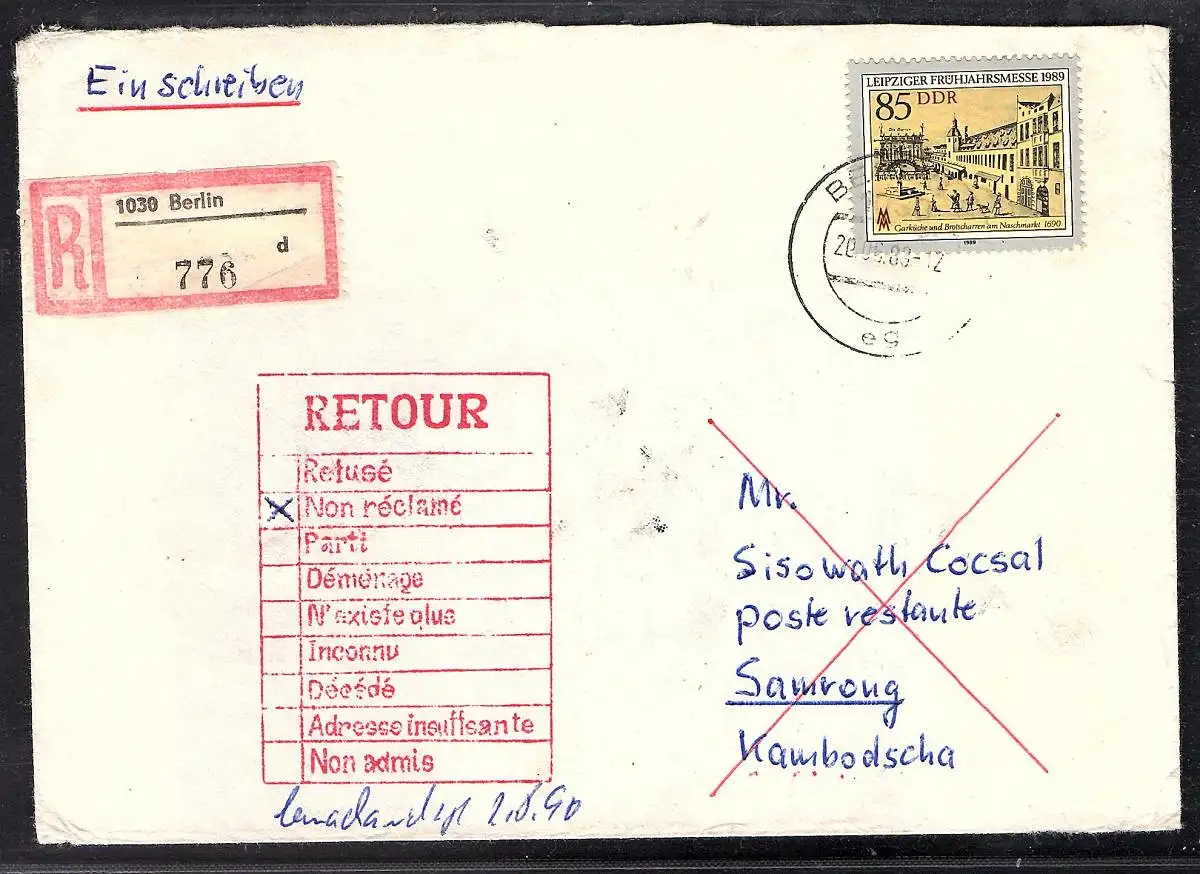 Einschreiben
LEIPZIGER FRÜHJAHRSMESSE 1989
85 DDR
Garküche und Brotscharren am Naschmarkt 1690
1989
R
1030 Berlin
d
776
eg
RETOUR
Refusé
X Non réclamé
Parti
Déménage
N'existe plus
Inconnu
Décédé
Adresse insuffsante
Non admis
Mr.
Sisowath Cocsal
poste restante
Samrong
Kambodscha